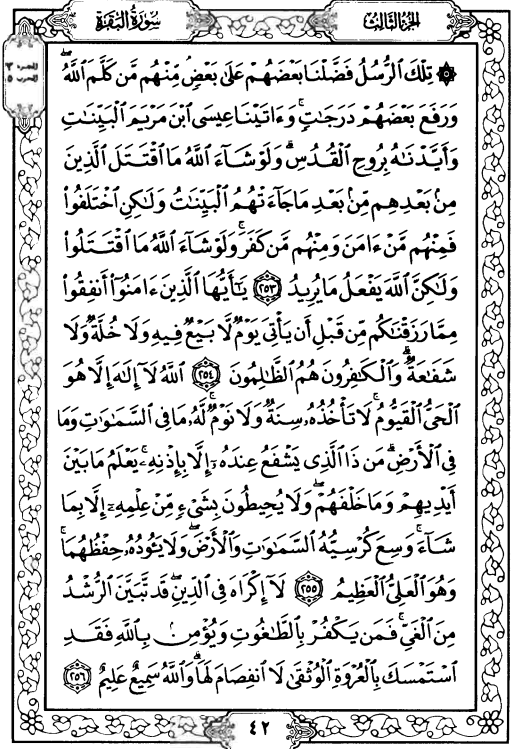 سورة البقرة
الجزء الثالث
الجزء ٣
الحزب ٥
تِلْكَ ٱلرُّسُلُ فَضَّلْنَا بَعْضَهُمْ عَلَىٰ بَعْضٍ مِّنْهُم مَّن كَلَّمَ ٱللَّهُ
وَرَفَعَ بَعْضَهُمْ دَرَجَٰتٍ وَءَاتَيْنَا عِيسَى ٱبْنَ مَرْيَمَ ٱلْبَيِّنَٰتِ
وَأَيَّدْنَٰهُ بِرُوحِ ٱلْقُدُسِ وَلَوْ شَآءَ ٱللَّهُ مَا ٱقْتَتَلَ ٱلَّذِينَ
مِنۢ بَعْدِهِم مِّنۢ بَعْدِ مَا جَآءَتْهُمُ ٱلْبَيِّنَٰتُ وَلَٰكِنِ ٱخْتَلَفُوا۟
فَمِنْهُم مَّنْ ءَامَنَ وَمِنْهُم مَّن كَفَرَ وَلَوْ شَآءَ ٱللَّهُ مَا ٱقْتَتَلُوا۟
وَلَٰكِنَّ ٱللَّهَ يَفْعَلُ مَا يُرِيدُ ٢٥٣ يَٰٓأَيُّهَا ٱلَّذِينَ ءَامَنُوٓا۟ أَنفِقُوا۟
مِمَّا رَزَقْنَٰكُم مِّن قَبْلِ أَن يَأْتِىَ يَوْمٌ لَّا بَيْعٌ فِيهِ وَلَا خُلَّةٌ وَلَا
شَفَٰعَةٌ وَٱلْكَٰفِرُونَ هُمُ ٱلظَّٰلِمُونَ ٢٥٤ ٱللَّهُ لَآ إِلَٰهَ إِلَّا هُوَ
ٱلْحَىُّ ٱلْقَيُّومُ لَا تَأْخُذُهُۥ سِنَةٌ وَلَا نَوْمٌ لَّهُۥ مَا فِى ٱلسَّمَٰوَٰتِ وَمَا
فِى ٱلْأَرْضِ مَن ذَا ٱلَّذِى يَشْفَعُ عِندَهُۥٓ إِلَّا بِإِذْنِهِۦ يَعْلَمُ مَا بَيْنَ
أَيْدِيهِمْ وَمَا خَلْفَهُمْ وَلَا يُحِيطُونَ بِشَىْءٍ مِّنْ عِلْمِهِۦٓ إِلَّا بِمَا
شَآءَ وَسِعَ كُرْسِيُّهُ ٱلسَّمَٰوَٰتِ وَٱلْأَرْضَ وَلَا يَـُٔودُهُۥ حِفْظُهُمَا
وَهُوَ ٱلْعَلِىُّ ٱلْعَظِيمُ ٢٥٥ لَآ إِكْرَاهَ فِى ٱلدِّينِ قَد تَّبَيَّنَ ٱلرُّشْدُ
مِنَ ٱلْغَىِّ فَمَن يَكْفُرْ بِٱلطَّٰغُوتِ وَيُؤْمِنۢ بِٱللَّهِ فَقَدِ
ٱسْتَمْسَكَ بِٱلْعُرْوَةِ ٱلْوُثْقَىٰ لَا ٱنفِصَامَ لَهَا وَٱللَّهُ سَمِيعٌ عَلِيمٌ ٢٥٦
٤٢